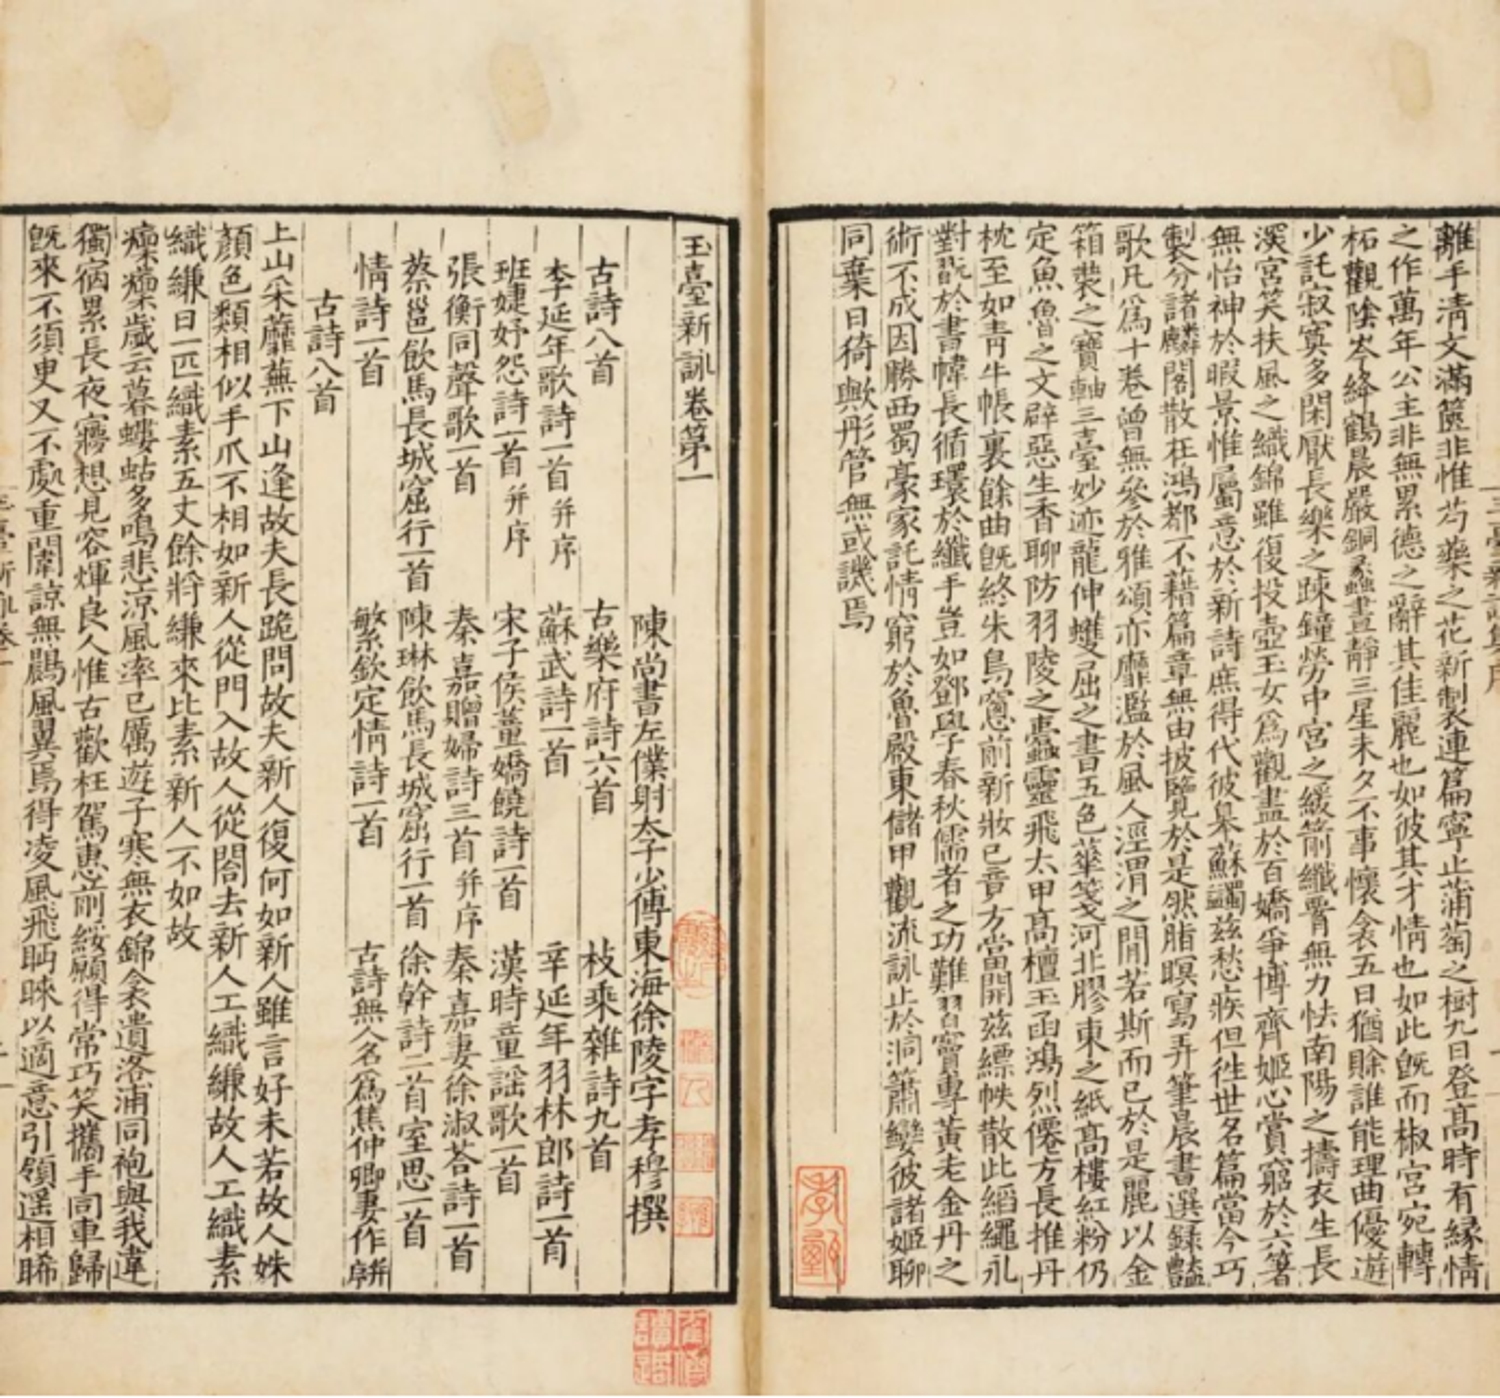 離手清文滿篋非惟芍藥之花新製連篇寧止蒲萄之樹九日登高時有緣情
之作萬年公主非無累德之辭其佳麗也如彼其才情也如此旣而椒宮宛轉
柘觀陰岑絳鶴晨嚴銅蠡晝靜三星未夕不事懷衾五日猶賖誰能理曲優遊
少託寂寞多閑厭長樂之踈鐘勞中宮之緩箭纖腰無力怯南陽之擣衣生長
深宮笑扶風之織錦雖復投壺玉女爲觀盡於百嬌爭博齊姬心賞窮於六箸
無怡神於暇景惟屬意於新詩庶得代彼皋蘇蠲茲愁疾但徃世名篇當今巧
製分諸麟閣散在鴻都不藉篇章無由披覽於是然脂暝寫弄筆晨書選録豔
歌凡爲十卷曾無參於雅頌亦靡濫於風人涇渭之閒若斯而已於是麗以金
箱裝之寶軸三臺妙迹龍伸蠖屈之書五色華箋河北膠東之紙高樓紅粉仍
定魚魯之文辟惡生香聊防羽陵之蠹靈飛太甲高檀玉函鴻烈僊方長推丹
枕至如靑牛帳裏餘曲旣終朱鳥窻前新妝已竟方當開茲縹帙散此縚繩永
對翫於書幃長循環於纖手豈如鄧學春秋儒者之功難習竇專黃老金丹之
術不成因勝西蜀豪家託情窮於魯殿東儲甲觀流詠止於洞簫孌彼諸姬聊
同棄日猗歟彤管無或譏焉
玉臺新詠卷第一
陳尚書左僕射太子少傅東海徐陵字孝穆撰
古詩八首 古樂府詩六首 枚乘雜詩九首
李延年歌詩一首并序 蘇武詩一首 辛延年羽林郎詩一首
班婕妤怨詩一首并序 宋子侯董嬌饒詩一首 漢時童謡歌一首
張衡同聲歌一首 秦嘉贈婦詩三首并序 秦嘉妻徐淑荅詩一首
蔡邕飲馬長城窟行一首 陳琳飲馬長城窟行一首 徐幹詩二首室思一首
情詩一首 繁欽定情詩一首 古詩無人名爲焦仲卿妻作并序
古詩八首
上山采蘼蕪下山逢故夫長跪問故夫新人復何如新人雖言好未若故人姝
顏色類相似手爪不相如新人從門入故人從閤去新人工織縑故人工織素
織縑日一匹織素五丈餘將縑來比素新人不如故
凜凜歲云暮螻蛄多鳴悲涼風率已厲遊子寒無衣錦衾遺洛浦同袍與我違
獨宿累長夜寤想見容煇良人惟古歡枉駕惠前綏願得常巧笑攜手同車歸
旣來不須臾又不處重闈諒無鷐風翼焉得凌風飛眄睞以適意引領遥相睎